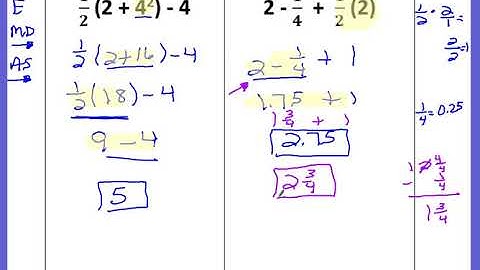 E
MD
AS
1/2 (2 + 4²) - 4
1/2 (2+16) - 4
1/2 (18) - 4
9 - 4
5
2 - 1/4 + 1/2 (2)
2 - 1/4 + 1
1.75 + 1
1 3/4 + 1
2.75
2 3/4
1/2 · 2/1 =
2/2 = 1
1/4 = 0.25
4/4
- 1/4
1 3/4